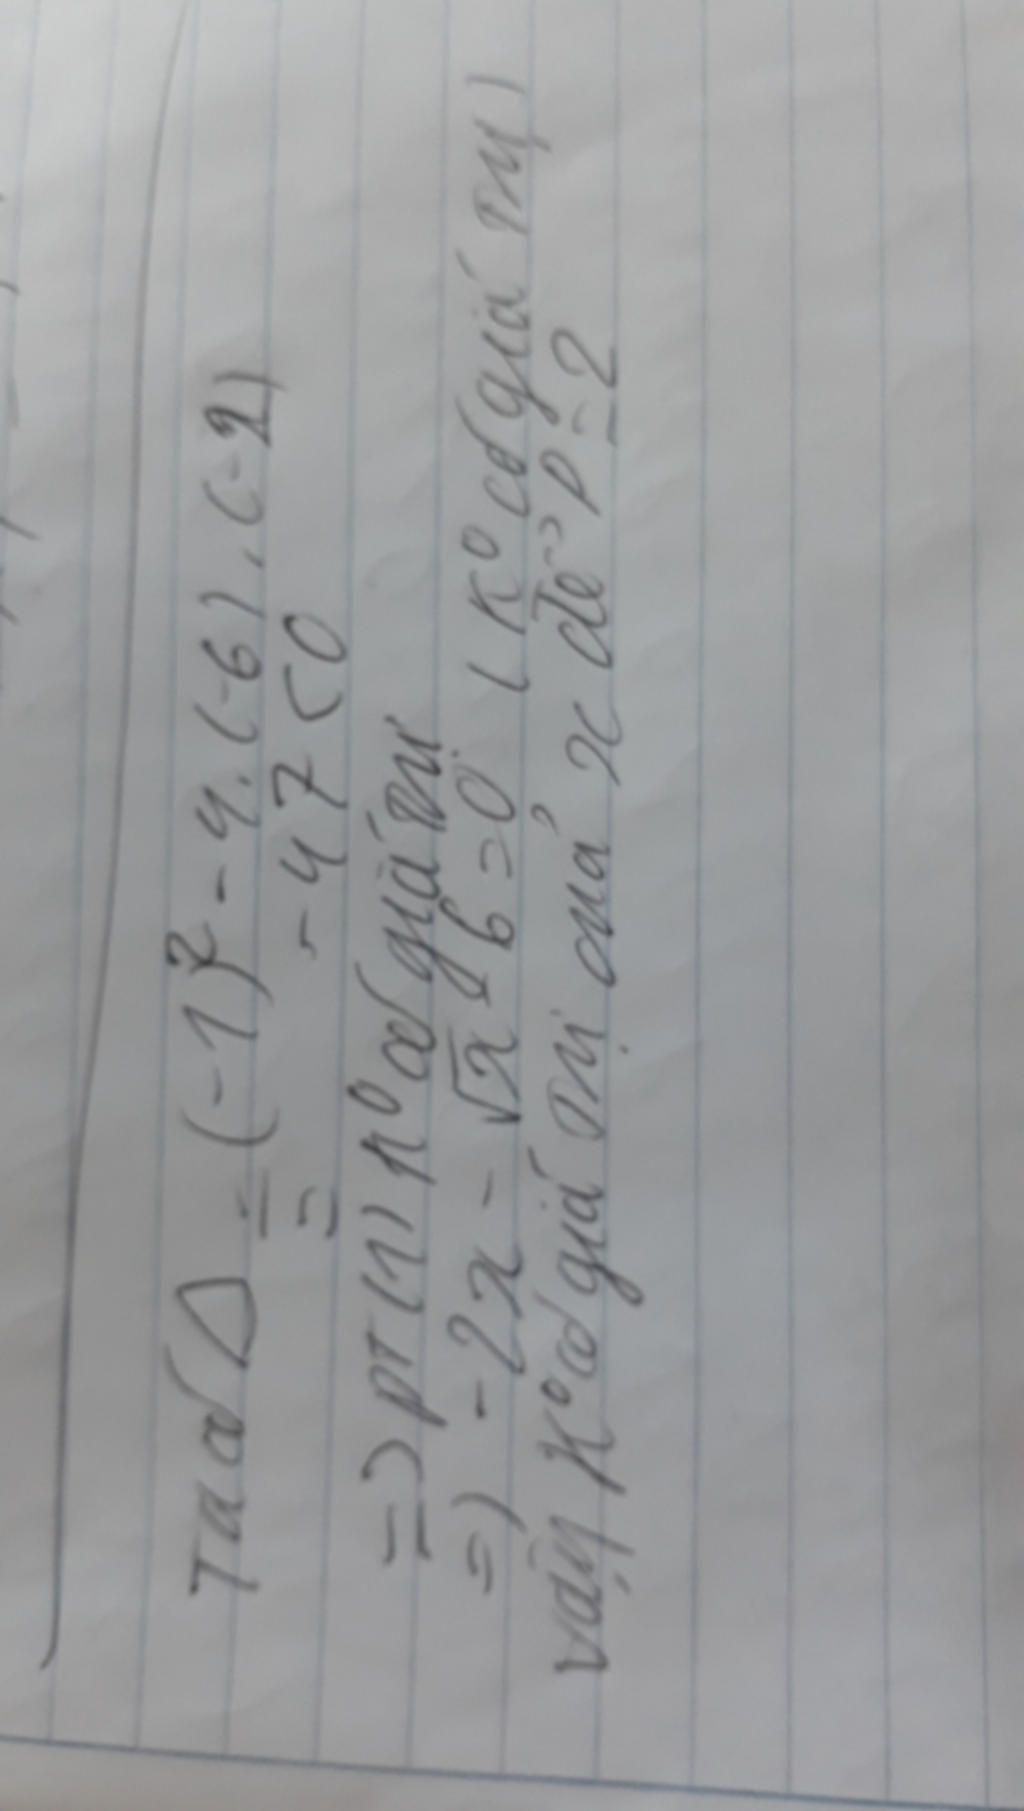 Ta có Δ = (-1)² - 4.(-6).(-2)
= -47 < 0
=> PT (1) K⁰ có giá trị
=> -2x - √x - 6 = 0 (K⁰ có giá trị)
vậy K⁰ có giá trị của x để P = 2